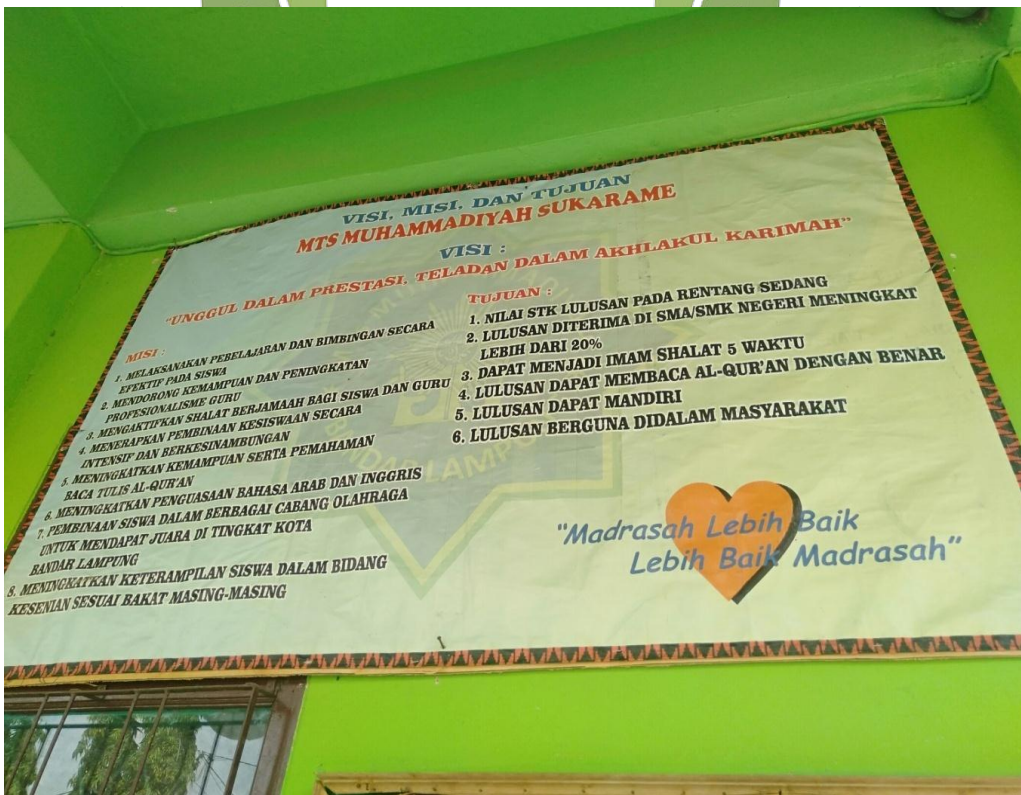 VISI, MISI, DAN TUJUAN
MTS MUHAMMADIYAH SUKARAME
VISI :
"UNGGUL DALAM PRESTASI, TELADAN DALAM AKHLAKUL KARIMAH"
MISI :
1. MELAKSANAKAN PEBELAJARAN DAN BIMBINGAN SECARA
EFEKTIF PADA SISWA
2. MENDORONG KEMAMPUAN DAN PENINGKATAN
PROFESIONALISME GURU
3. MENGAKTIFKAN SHALAT BERJAMAAH BAGI SISWA DAN GURU
4. MENERAPKAN PEMBINAAN KESISWAAN SECARA
INTENSIF DAN BERKESINAMBUNGAN
5. MENINGKATKAN KEMAMPUAN SERTA PEMAHAMAN
BACA TULIS AL-QUR'AN
6. MENINGKATKAN PENGUASAAN BAHASA ARAB DAN INGGRIS
7. PEMBINAAN SISWA DALAM BERBAGAI CABANG OLAHRAGA
UNTUK MENDAPAT JUARA DI TINGKAT KOTA
BANDAR LAMPUNG
8. MENINGKATKAN KETERAMPILAN SISWA DALAM BIDANG
KESENIAN SESUAI BAKAT MASING-MASING
TUJUAN :
1. NILAI STK LULUSAN PADA RENTANG SEDANG
2. LULUSAN DITERIMA DI SMA/SMK NEGERI MENINGKAT
LEBIH DARI 20%
3. DAPAT MENJADI IMAM SHALAT 5 WAKTU
4. LULUSAN DAPAT MEMBACA AL-QUR'AN DENGAN BENAR
5. LULUSAN DAPAT MANDIRI
6. LULUSAN BERGUNA DIDALAM MASYARAKAT
"Madrasah Lebih Baik
Lebih Baik Madrasah"